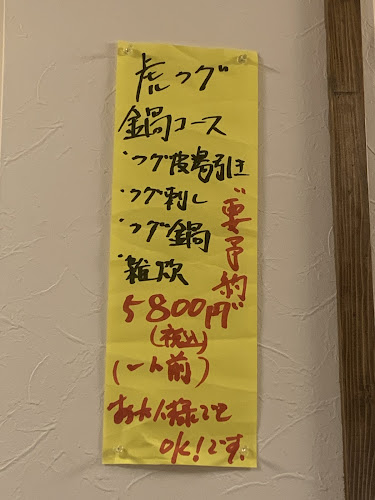 虎フグ
鍋コース
・フグ皮湯引き
・フグ刺し
・フグ鍋
・雑炊
"要予約"
5800円
(税込)
(一人前)
お1人様でも
OK!です。